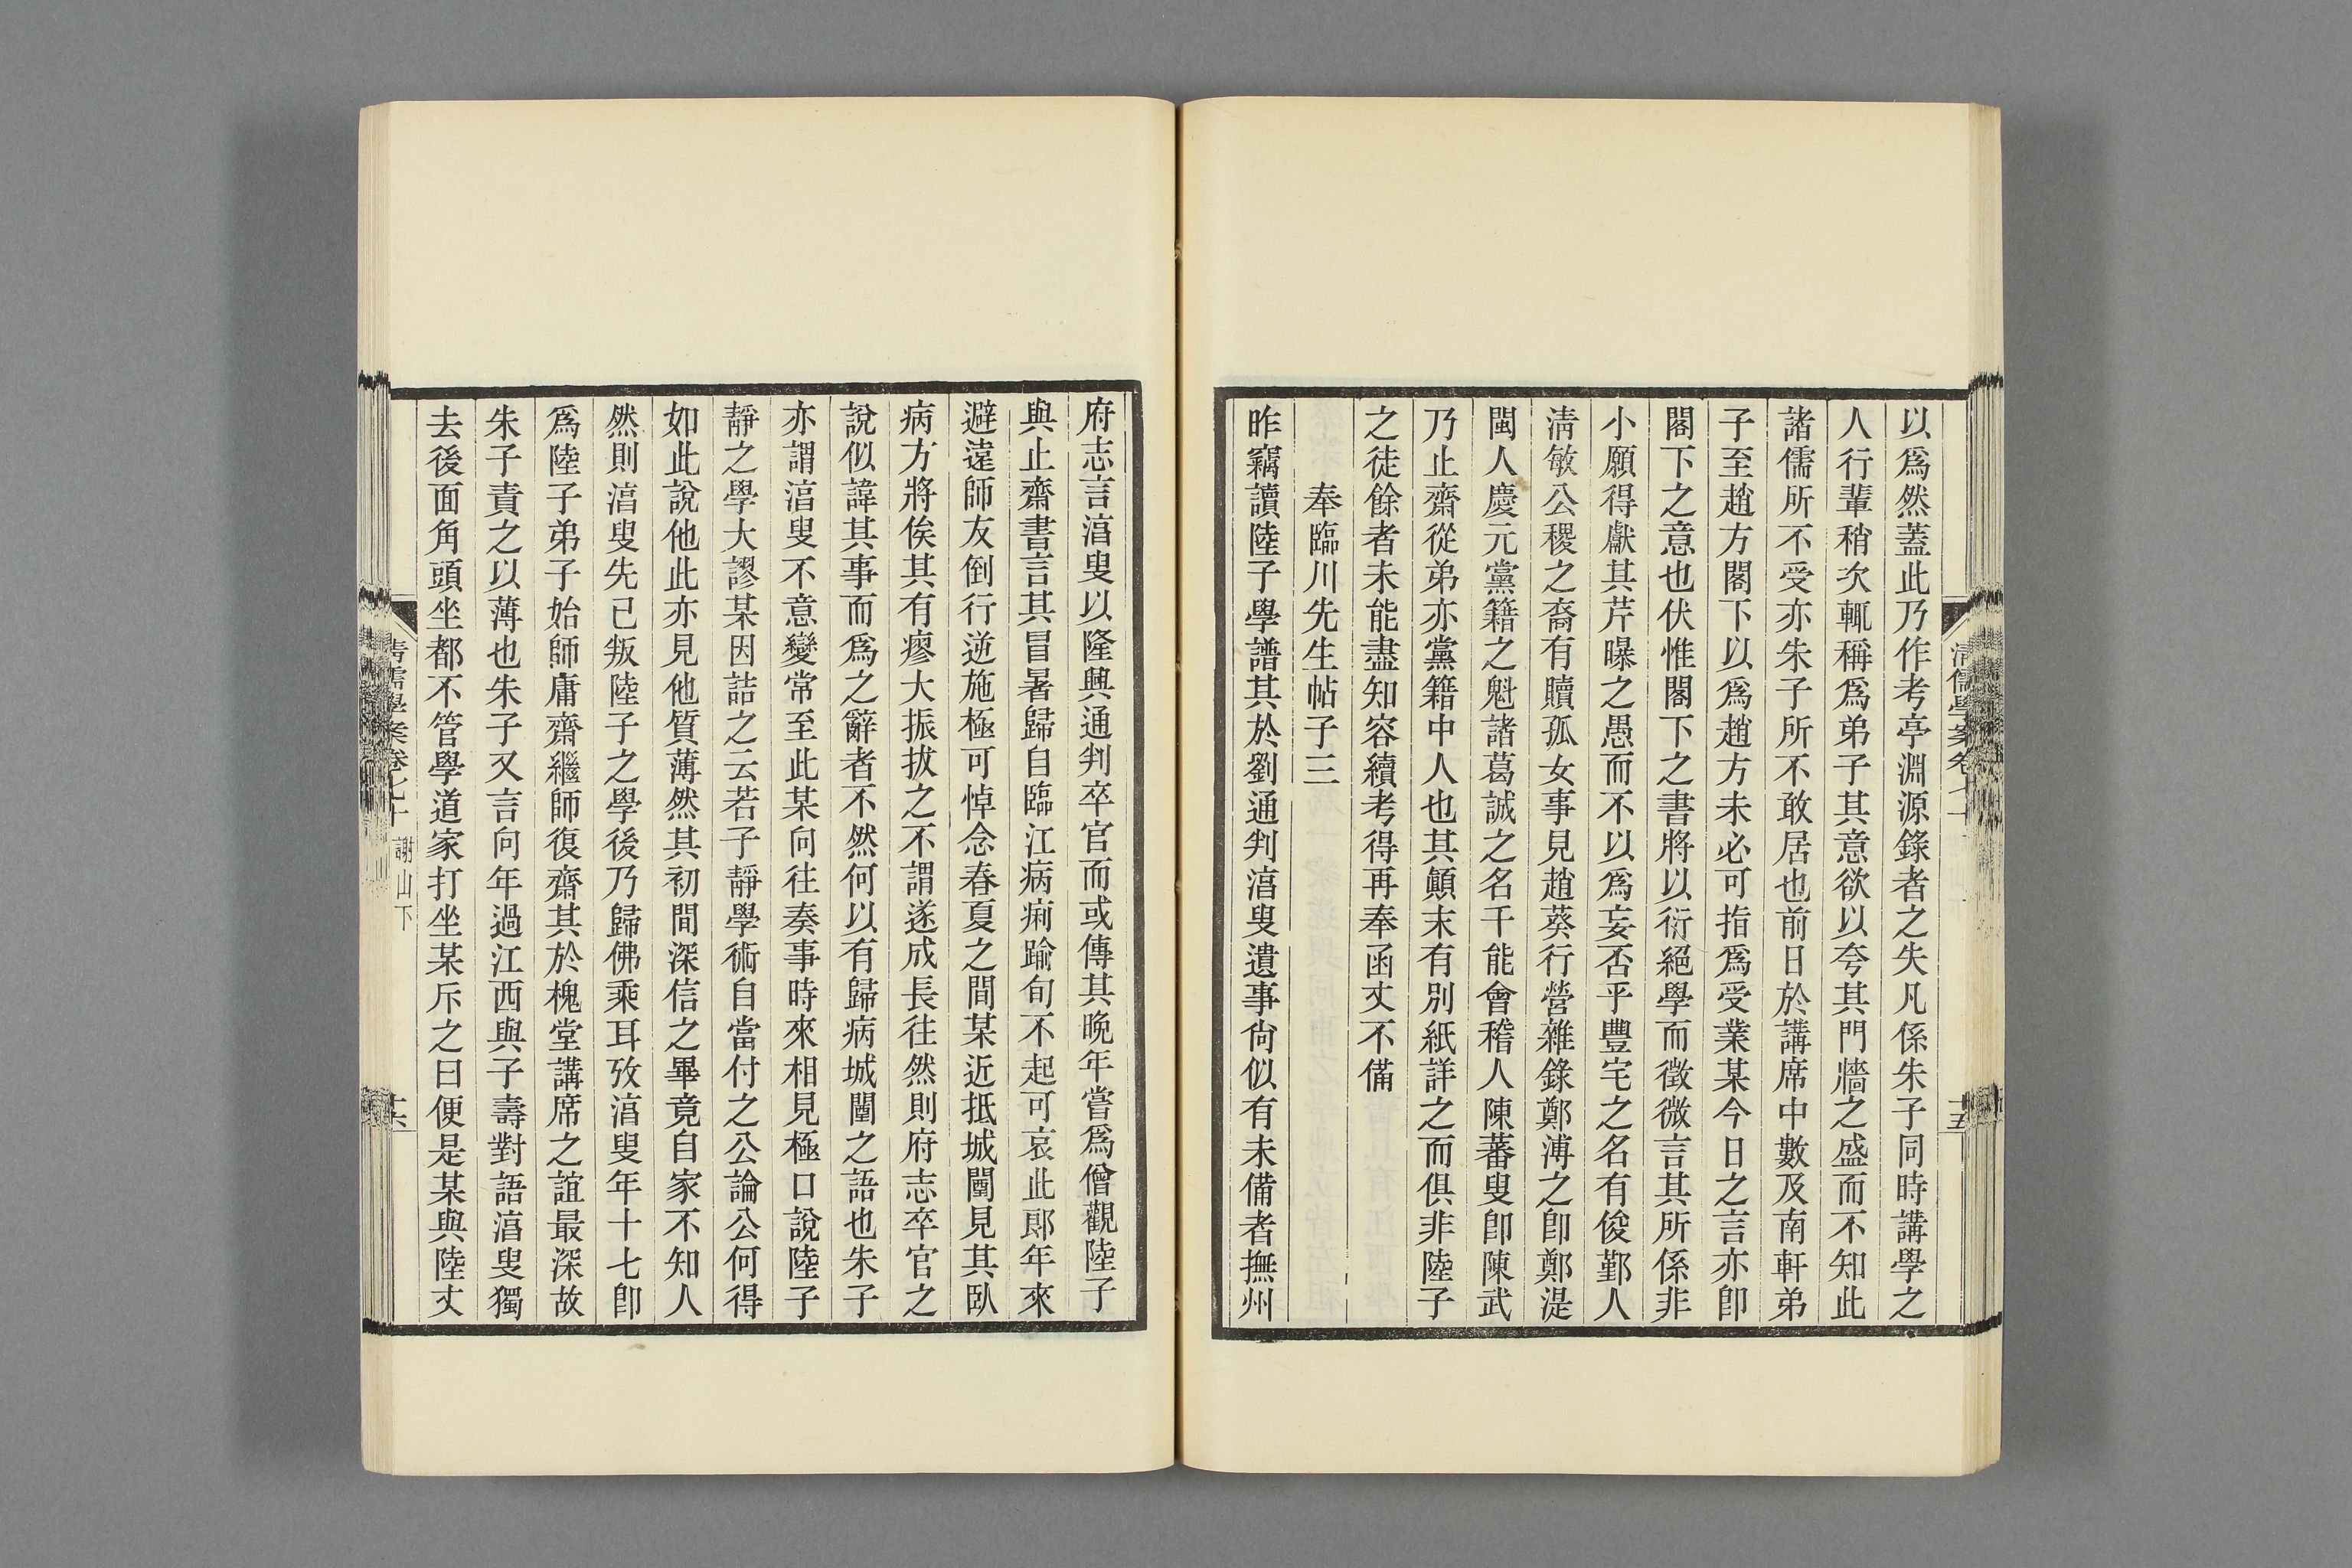 以爲然蓋此乃作考亭淵源錄者之失凡係朱子同時講學之
人行輩稍次輒稱爲弟子其意欲以夸其門牆之盛而不知此
諸儒所不受亦朱子所不敢居也前日於講席中數及南軒弟
子至趙方閣下以爲趙方未必可指爲受業某今日之言亦卽
閣下之意也伏惟閣下之書將以衍絕學而徵微言其所係非
小願得獻其芹曝之愚而不以爲妄否乎豐宅之名有俊鄞人
淸敏公稷之裔有贖孤女事見趙葵行營雜錄鄭溥之卽鄭湜
閩人慶元黨籍之魁諸葛誠之名千能會稽人陳蕃叟卽陳武
乃止齋從弟亦黨籍中人也其顚末有別紙詳之而俱非陸子
之徒餘者未能盡知容續考得再奉函丈不備
奉臨川先生帖子三
昨竊讀陸子學譜其於劉通判淳叟遺事尙似有未備者撫州
府志言淳叟以隆興通判卒官而或傳其晚年嘗爲僧觀陸子
與止齋書言其冒暑歸自臨江病痢踰旬不起可哀此郞年來
避遠師友倒行逆施極可悼念春夏之間某近抵城闉見其臥
病方將俟其有瘳大振拔之不謂遂成長往然則府志卒官之
說似諱其事而爲之辭者不然何以有歸病城闉之語也朱子
亦謂淳叟不意變常至此某向往奏事時來相見極口說陸子
靜之學大謬某因詰之云若子靜學術自當付之公論公何得
如此說他此亦見他質薄然其初間深信之畢竟自家不知人
然則淳叟先已叛陸子之學後乃歸佛乘耳攷淳叟年十七卽
爲陸子弟子始師庸齋繼師復齋其於槐堂講席之誼最深故
朱子責之以薄也朱子又言向年過江西與子壽對語淳叟獨
去後面角頭坐都不管學道家打坐某斥之曰便是某與陸丈
清儒學案卷七十
謝山下
十六
十五